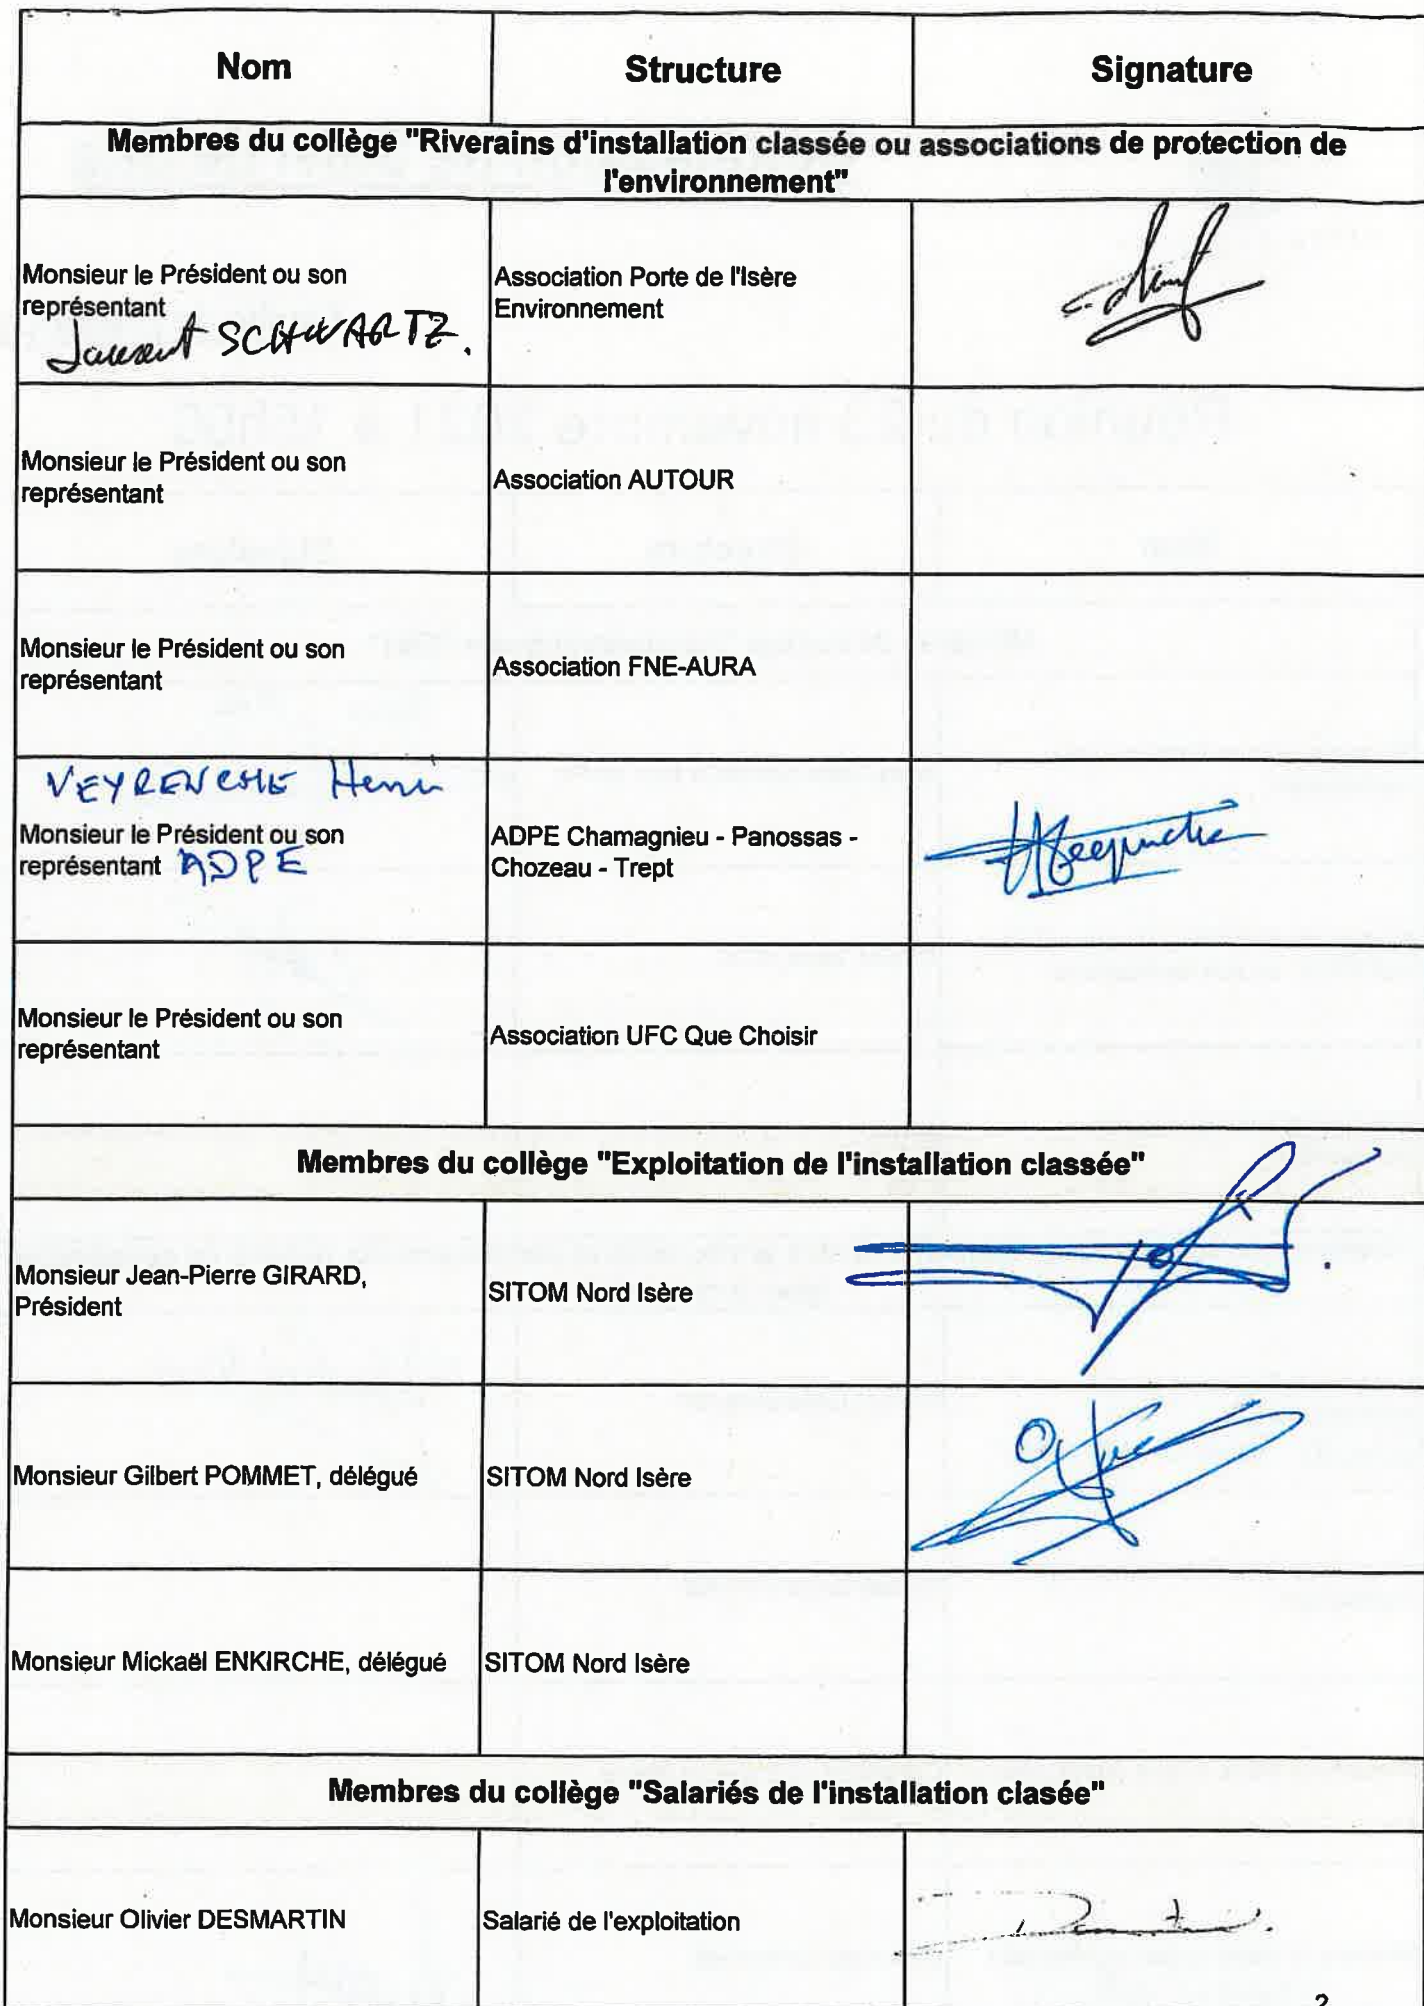 Nom
Structure
Signature
Membres du collège "Riverains d'installation classée ou associations de protection de
l'environnement"
Monsieur le Président ou son
représentant
Laurent SCHWARTZ.
Association Porte de l'Isère
Environnement
Monsieur le Président ou son
représentant
Association AUTOUR
Monsieur le Président ou son
représentant
Association FNE-AURA
VEYRENCHE Henri
Monsieur le Président ou son
représentant ADPE
ADPE Chamagnieu - Panossas -
Chozeau - Trept
Monsieur le Président ou son
représentant
Association UFC Que Choisir
Membres du collège "Exploitation de l'installation classée"
Monsieur Jean-Pierre GIRARD,
Président
SITOM Nord Isère
Monsieur Gilbert POMMET, délégué
SITOM Nord Isère
Monsieur Mickaël ENKIRCHE, délégué
SITOM Nord Isère
Membres du collège "Salariés de l'installation clasée"
Monsieur Olivier DESMARTIN
Salarié de l'exploitation
2